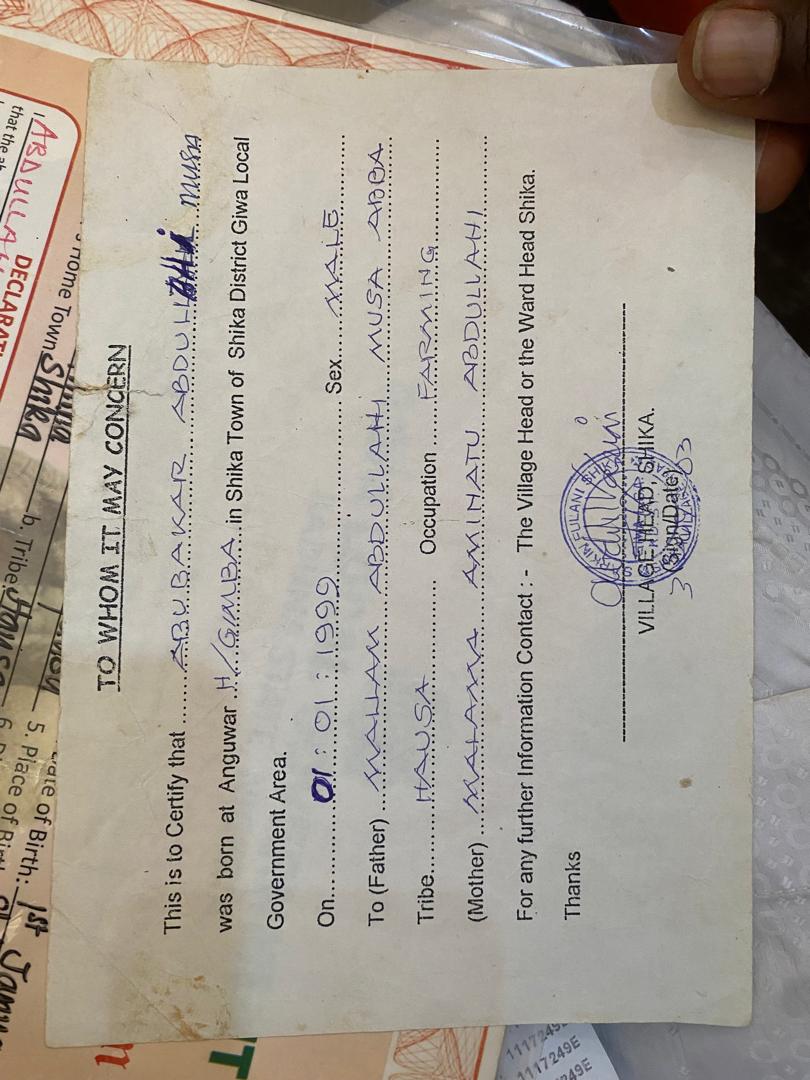 TO WHOM IT MAY CONCERN
This is to Certify that ABUBAKAR ABDULLAHI MUSA
was born at Anguwar H/GIMBA in Shika Town of Shika District Giwa Local
Government Area.
On 01:01:1999 Sex MALE
To (Father) MALLAM ABDULLAHI MUSA ABBA
Tribe HAUSA Occupation FARMING
(Mother) MAHAMA AMINATU ABDULLAHI
For any further Information Contact : - The Village Head or the Ward Head Shika.
Thanks
VILLAGE HEAD, SHIKA.
(Sign/Date)
DECLARATI
that the
Home Town Shika
b. Tribe Hausa
5. Place of Birth
Date of Birth: 1st Janua
1117249E
1117249E